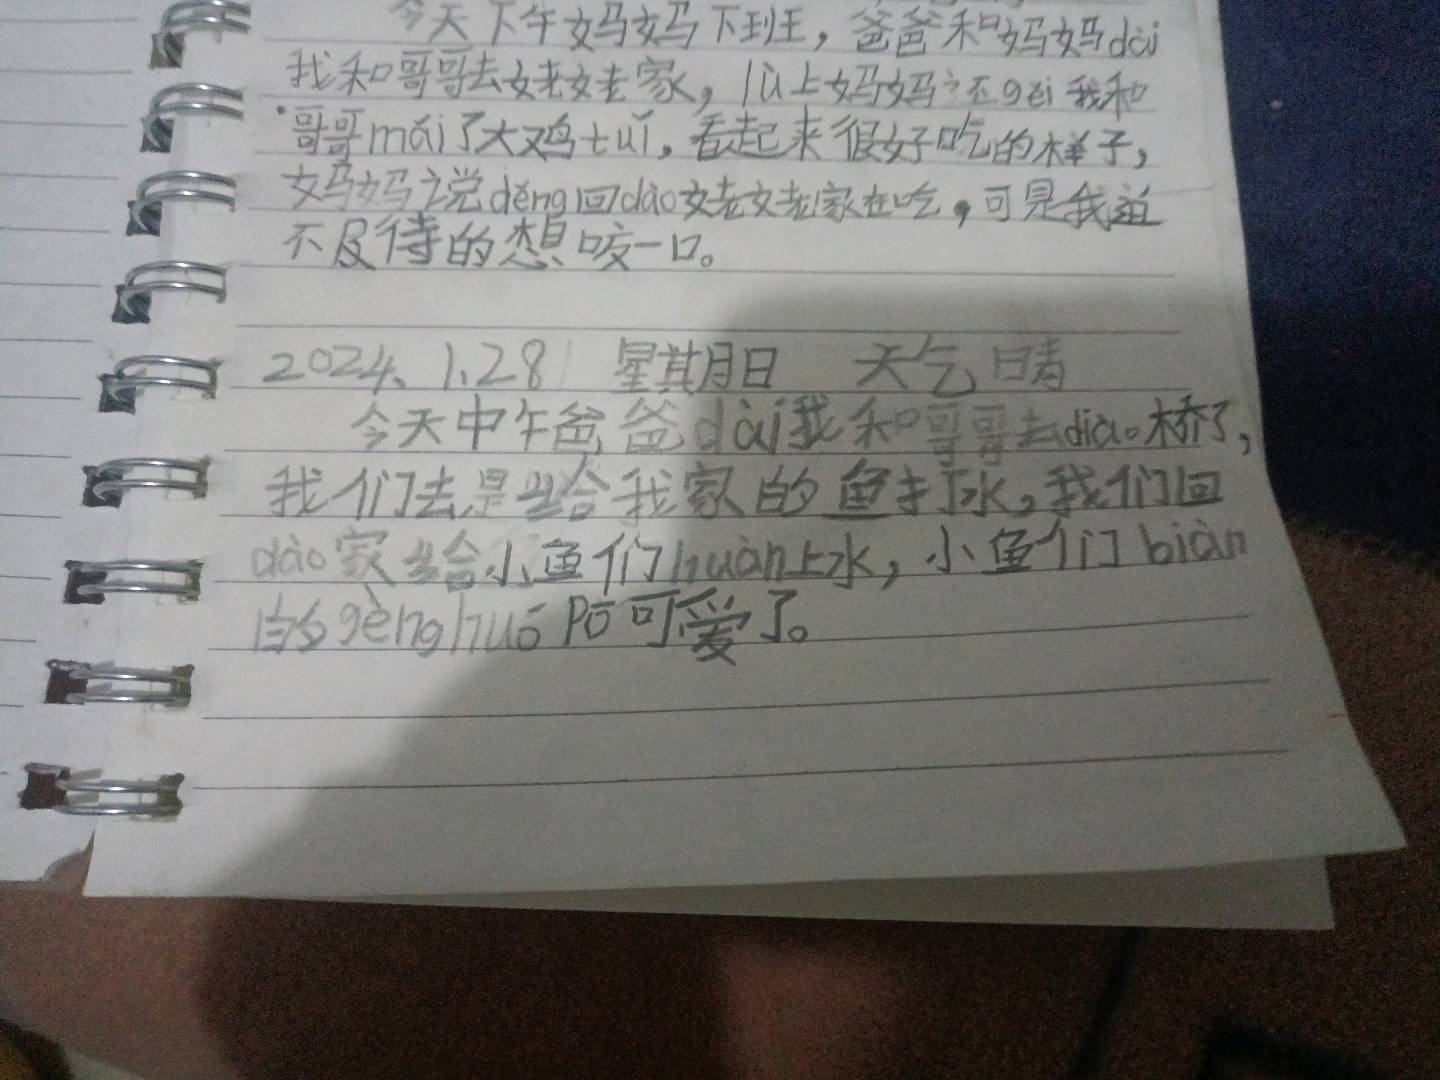 今天下午妈妈下班，爸爸和妈妈dài
我和哥哥去姥姥家，lù上妈妈还gěi我和
哥哥mǎi了大鸡tuǐ，看起来很好吃的样子，
妈妈说děng回dào姥姥家在吃，可是我迫
不及待的想咬一口。
2024、1、28 星其月日 天气 晴
今天中午爸爸dài我和哥哥去diào桥了，
我们去是给我家的鱼打水，我们回
dào家给小鱼们huàn上水，小鱼们biàn
的gèng huó pō可爱了。